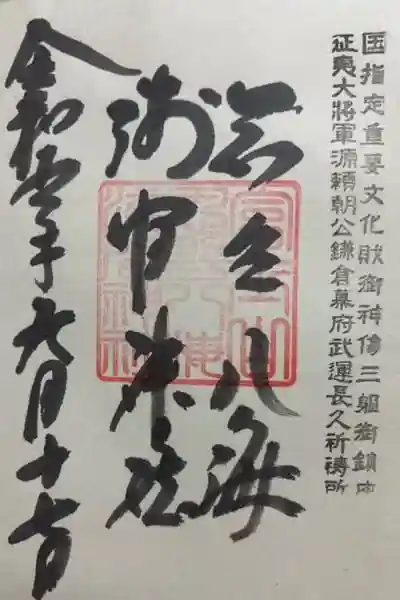 国指定重要文化財御神像三躯御鎮内
征夷大将軍源頼朝公鎌倉幕府武運長久祈祷所
八海
浅間神社
令和壱年九月十日